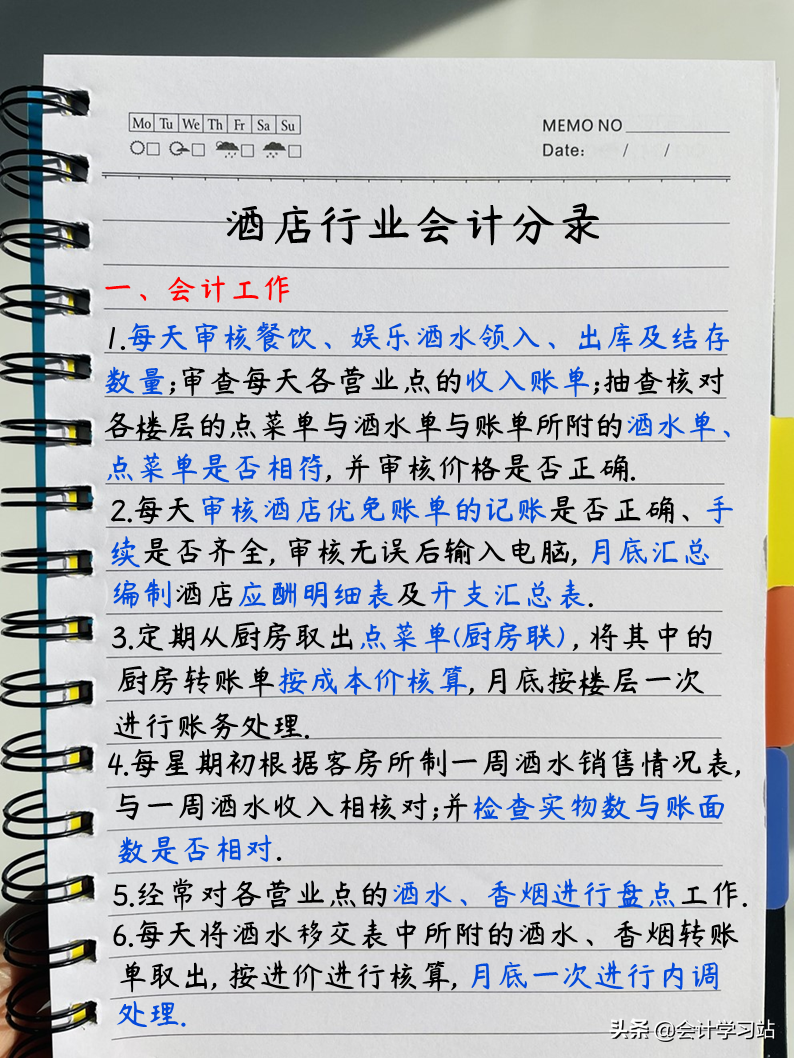 Mo Tu We Th Fr Sa Su
MEMO NO
Date: / /
酒店行业会计分录
一、会计工作
1.每天审核餐饮、娱乐酒水领入、出库及结存
数量;审查每天各营业点的收入账单;抽查核对
各楼层的点菜单与酒水单与账单所附的酒水单、
点菜单是否相符,并审核价格是否正确.
2.每天审核酒店优免账单的记账是否正确、手
续是否齐全,审核无误后输入电脑,月底汇总
编制酒店应酬明细表及开支汇总表.
3.定期从厨房取出点菜单(厨房联),将其中的
厨房转账单按成本价核算,月底按楼层一次
进行账务处理.
4.每星期初根据客房所制一周酒水销售情况表,
与一周酒水收入相核对;并检查实物数与账面
数是否相对.
5.经常对各营业点的酒水、香烟进行盘点工作.
6.每天将酒水移交表中所附的酒水、香烟转账
单取出,按进价进行核算,月底一次进行内调
处理.
头条 @会计学习站